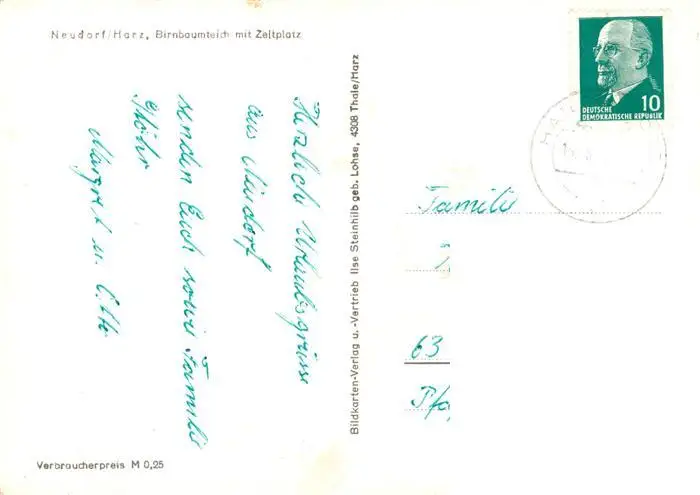 Neudorf/Harz, Birnbaumteich mit Zeltplatz
Herzliche Urlaubsgrüsse
aus Neudorf
senden Euch sowie Familie
Margret u. Otto
Verbraucherpreis M 0,25
Bildkarten-Verlag u. -Vertrieb Ilse Steinhilb geb. Lohse, 4308 Thale/Harz
10
DEUTSCHE
DEMOKRATISCHE REPUBLIK
Familie
63